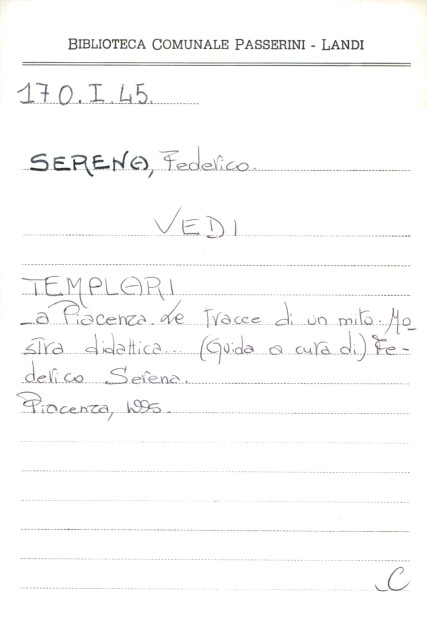 BIBLIOTECA COMUNALE PASSERINI - LANDI
170.I.45.
SERENA, Federico.
VEDI
TEMPLARI
_a Piacenza. Le tracce di un mito. Mo-
stra didattica... (Guida a cura di) Fe-
derico Serena.
Piacenza, 1995.
C